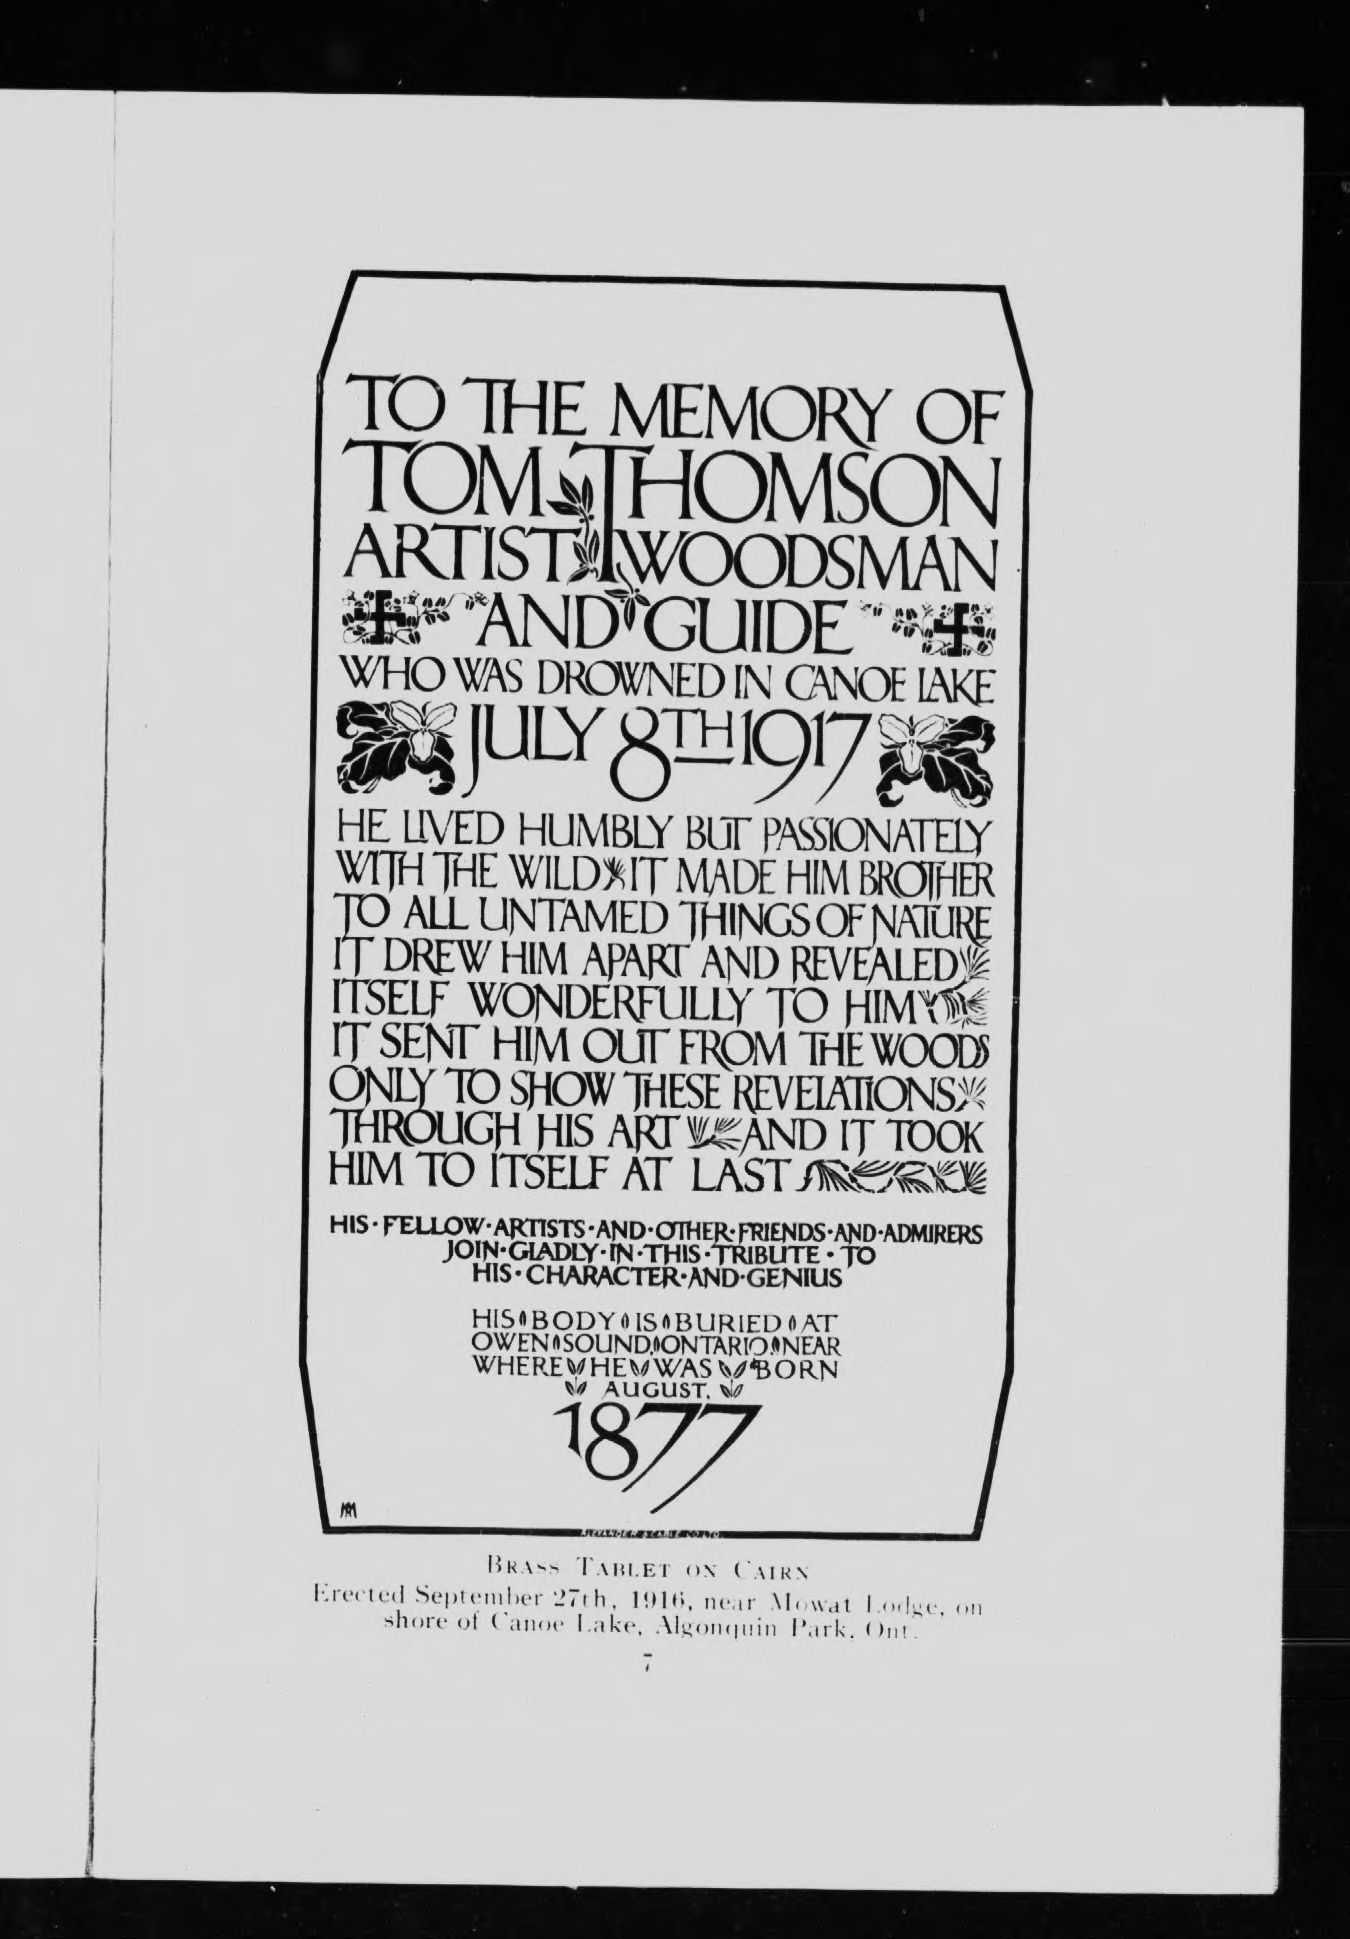 TO THE MEMORY OF
TOM THOMSON
ARTIST WOODSMAN
AND GUIDE
WHO WAS DROWNED IN CANOE LAKE
JULY 8TH 1917
HE LIVED HUMBLY BUT PASSIONATELY
WITH THE WILD IT MADE HIM BROTHER
TO ALL UNTAMED THINGS OF NATURE
IT DREW HIM APART AND REVEALED
ITSELF WONDERFULLY TO HIM
IT SENT HIM OUT FROM THE WOODS
ONLY TO SHOW THESE REVELATIONS
THROUGH HIS ART AND IT TOOK
HIM TO ITSELF AT LAST
HIS·FELLOW·ARTISTS·AND·OTHER·FRIENDS·AND·ADMIRERS
JOIN·GLADLY·IN·THIS·TRIBUTE·TO
HIS·CHARACTER·AND·GENIUS
HIS BODY IS BURIED AT
OWEN SOUND, ONTARIO, NEAR
WHERE HE WAS BORN
AUGUST,
1877
ALEXANDER & CABLE CO LTD.
BRASS TABLET ON CAIRN
Erected September 27th, 1916, near Mowat Lodge, on
shore of Canoe Lake, Algonquin Park, Ont.
7